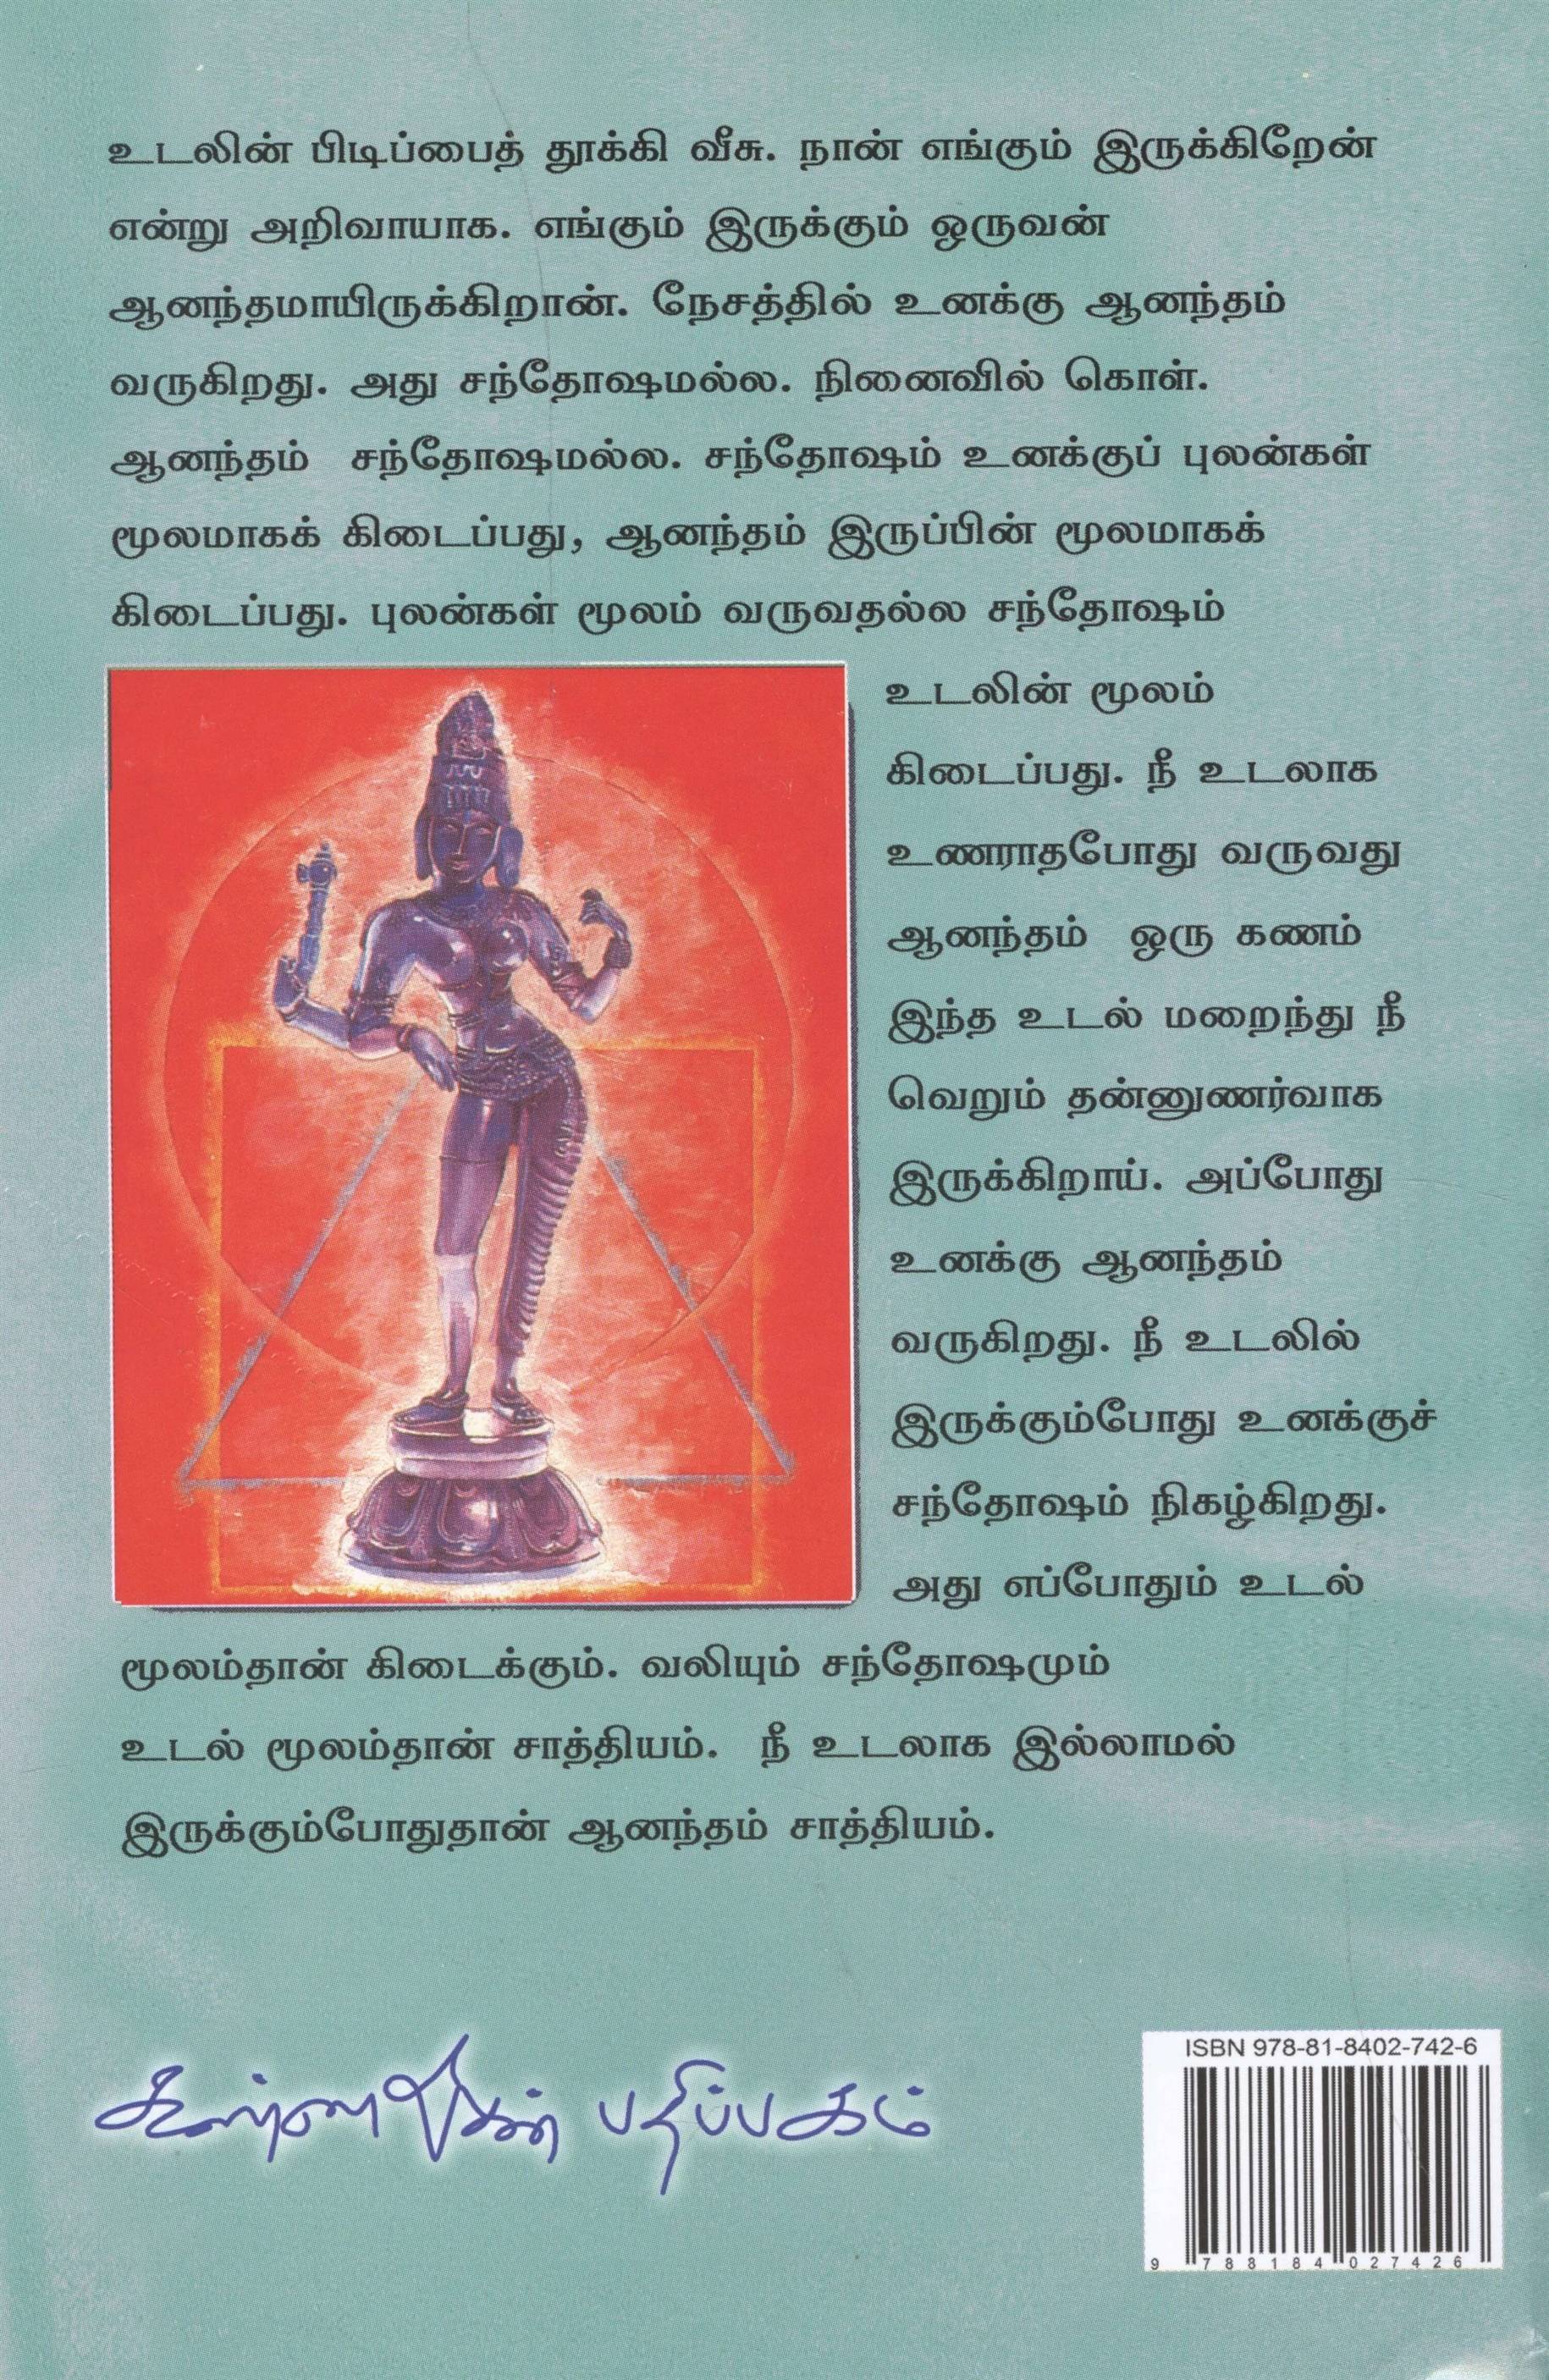 உடலின் பிடிப்பைத் தூக்கி வீசு. நான் எங்கும் இருக்கிறேன்
என்று அறிவாயாக. எங்கும் இருக்கும் ஒருவன்
ஆனந்தமாயிருக்கிறான். நேசத்தில் உனக்கு ஆனந்தம்
வருகிறது. அது சந்தோஷமல்ல. நினைவில் கொள்.
ஆனந்தம் சந்தோஷமல்ல. சந்தோஷம் உனக்குப் புலன்கள்
மூலமாகக் கிடைப்பது, ஆனந்தம் இருப்பின் மூலமாகக்
கிடைப்பது. புலன்கள் மூலம் வருவதல்ல சந்தோஷம்
உடலின் மூலம்
கிடைப்பது. நீ உடலாக
உணராதபோது வருவது
ஆனந்தம் ஒரு கணம்
இந்த உடல் மறைந்து நீ
வெறும் தன்னுணர்வாக
இருக்கிறாய். அப்போது
உனக்கு ஆனந்தம்
வருகிறது. நீ உடலில்
இருக்கும்போது உனக்குச்
சந்தோஷம் நிகழ்கிறது.
அது எப்போதும் உடல்
மூலம்தான் கிடைக்கும். வலியும் சந்தோஷமும்
உடல் மூலம்தான் சாத்தியம். நீ உடலாக இல்லாமல்
இருக்கும்போதுதான் ஆனந்தம் சாத்தியம்.
கண்ணதாசன் பதிப்பகம்
ISBN 978-81-8402-742-6
9 788184 027426